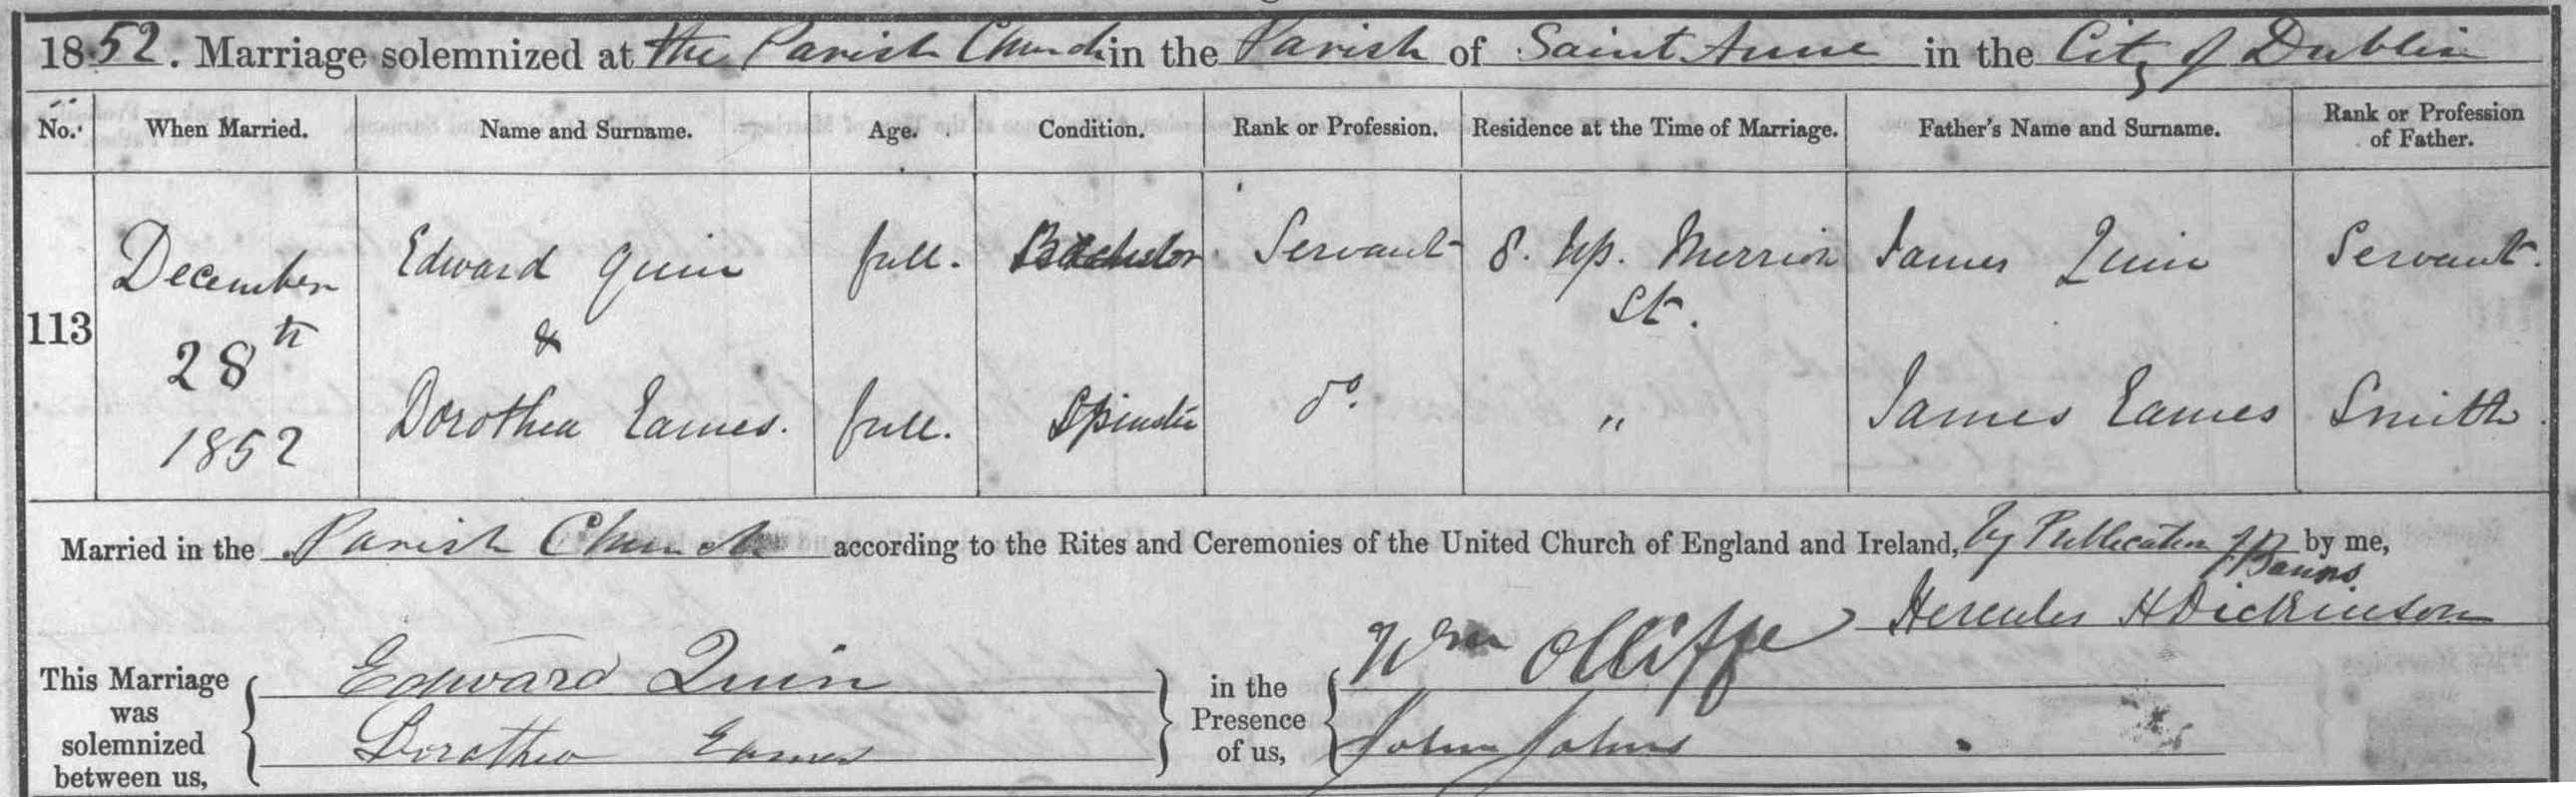 1852. Marriage solemnized at the Parish Church in the Parish of Saint Anne in the City of Dublin
No. When Married. Name and Surname. Age. Condition. Rank or Profession. Residence at the Time of Marriage. Father's Name and Surname. Rank or Profession of Father.
113 December 28th 1852 Edward Quin full. Bachelor Servant 8. Up. Merrion St. James Quin Servant.
&
Dorothea Eames. full. Spinster do. " James Eames Smith.
Married in the Parish Church according to the Rites and Ceremonies of the United Church of England and Ireland, by Publication of Banns by me,
Hercules H Dickinson
This Marriage was solemnized between us, Edward Quin in the Presence of us, Wm Olliffe
Dorothea Eames John Johns